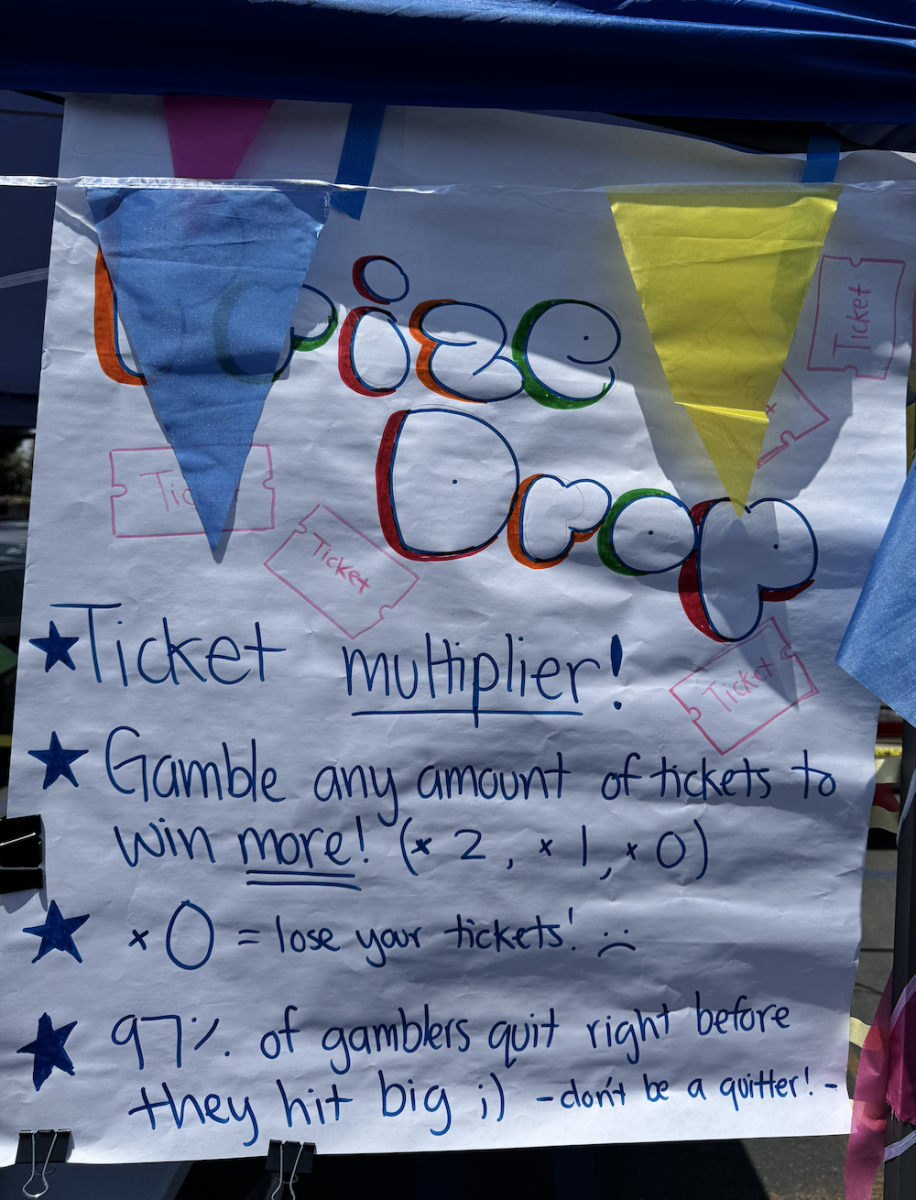 Prize
Drop
Ticket
Ticket
Ticket
Ticket
★Ticket multiplier!
★ Gamble any amount of tickets to
win more! (x 2, x 1, x 0)
★ x 0 = lose your tickets! :(
★ 97% of gamblers quit right before
they hit big ;) -don't be a quitter!-